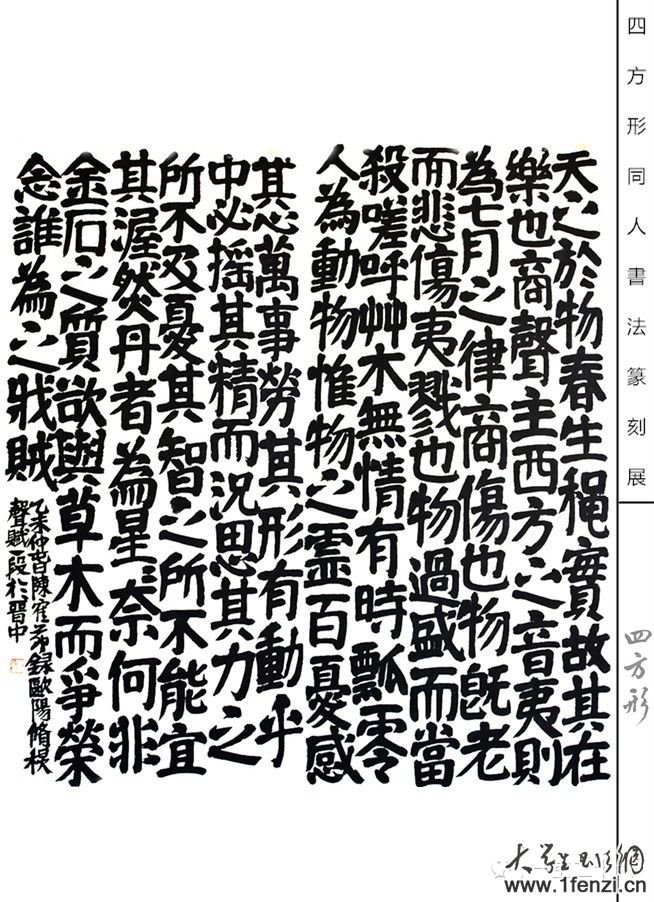 四方形同人書法篆刻展
四方形
天之於物春生穐實故其在
樂也商聲主西方之音夷則
為七月之律商傷也物旣老
而悲傷夷戮也物過盛而當
殺嗟呼艸木無情有時飄零
人為動物惟物之霊百憂感
其心萬事勞其形有動乎
中必搖其精而況思其力之
所不及憂其智之所不能宜
其渥然丹者為星〻奈何非
金石之質欲與草木而爭榮
念誰為之戕賊
乙未仲春陳錄歐陽脩秋
聲賦一段於晉中
大学生书法网
www.1fenzi.cn